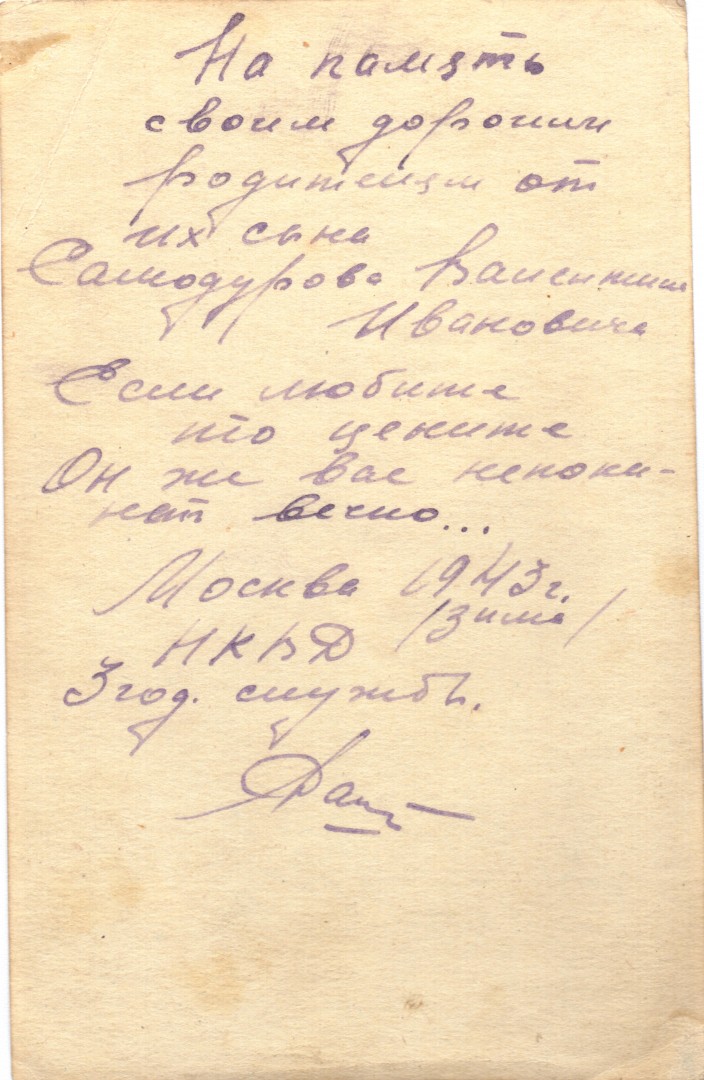 На память
своим дорогим
родителям от
их сына
Самодурова Валентина
Ивановича
Если любите
то цените
Он же вас непоки-
нет вечно...
Москва 1943 г.
НКВД /зима/
3 год. службы.